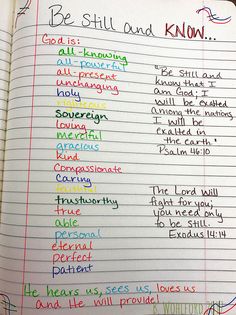 Be Still and KNOW...
God is:
all-knowing
all-powerful
all-present
unchanging
holy
righteous
Sovereign
loving
merciful
gracious
kind
Compassionate
caring
faithful
trustworthy
true
able
personal
eternal
perfect
patient
"Be still and
know that I
am God; I
will be exalted
among the nations,
I will be
exalted in
the earth"
Psalm 46:10
The Lord will
fight for you;
you need only
to be still.
Exodus 14:14
He hears us, sees us, loves us
and He will provide!